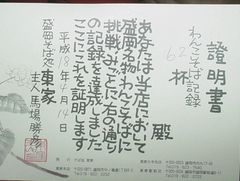 證明書
わんこそば記録
62杯
殿
あなたは当店において
盛岡名物わんこそばに
挑戦しみごとに右の通り
の記録を達成しました
ここにこれを証明します
平成18年4月14日
盛岡そば処 東家
主人 馬場勝彦